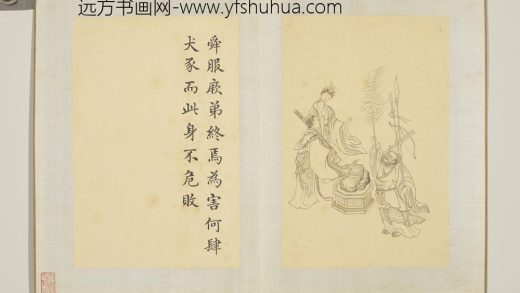 远方书画网-www.yfshuhua.com
舜服厥弟終焉為害何肆
犬豕而此身不危敗